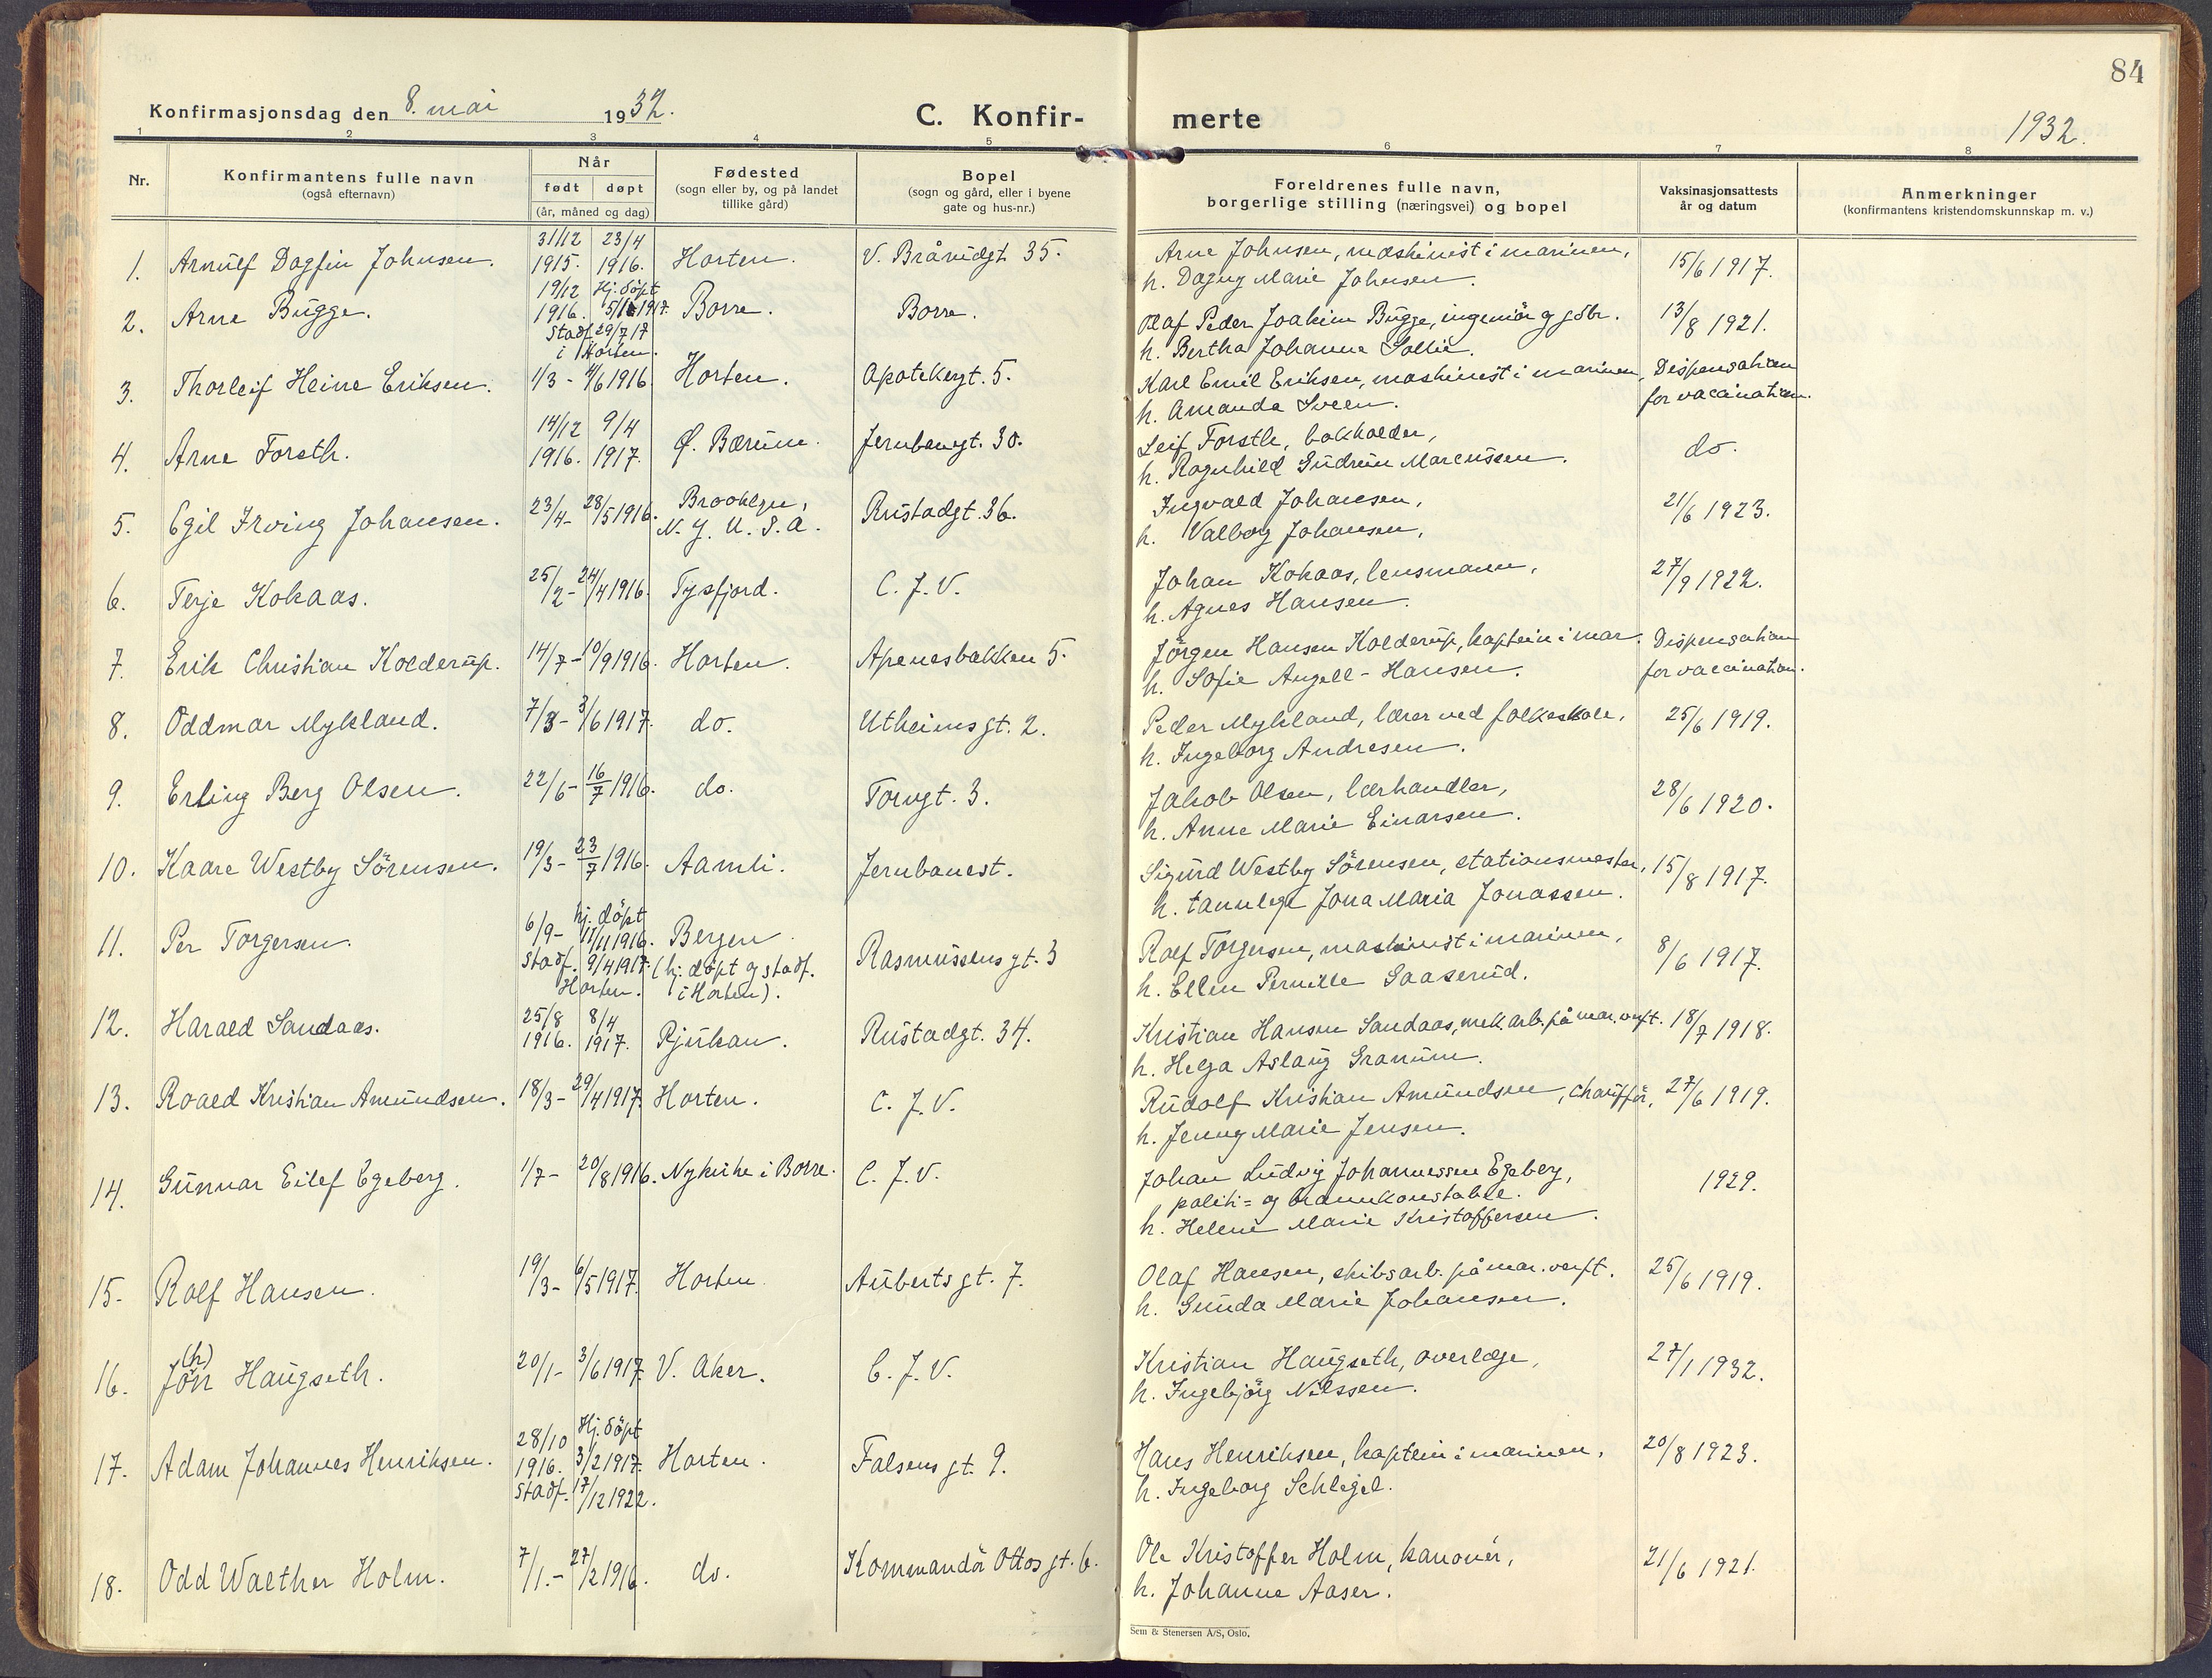 84
Konfirmasjonsdag den 8. mai 1932.
C. Konfir- merte
1932.
1 2 3 4 5 6 7 8
Nr.
Konfirmantens fulle navn
(også efternavn)
Når
født døpt
(år, måned og dag)
Fødested
(sogn eller by, og på landet
tillike gård)
Bopel
(sogn og gård, eller i byene
gate og hus-nr.)
Foreldrenes fulle navn,
borgerlige stilling (næringsvei) og bopel
Vaksinasjonsattests
år og datum
Anmerkninger
(konfirmantens kristendomskunnskap m. v.)
1. Arnulf Dagfin Johnsen. 31/12 1915. 23/4 1916. Horten. V. Bråvidgt 35.
Arne Johnsen, maskinist i marinen, 15/6 1917.
h. Dagny Marie Johnsen.
2. Arne Bugge. 19/12 1916. Hj. döpt 1917. Borre. Borre.
Stadf. 29/7 17
i Horten.
Olaf Peder Joakim Bugge, ingeniör g gdbr. 13/8 1921.
h. Bertha Johanne Sollie.
3. Thorleif Heine Eriksen. 1/3 - 4/6 1916 Horten. Apotekergt. 5.
Karl Emil Eriksen, maskinist i marinen, Dispensation
h. Amanda Sveen. for vaccination.
4. Arne Forsth. 14/12 1916. 9/4 1917. Ø. Bærum. Jernbanegt. 30.
Leif Forsth, bokholder, do.
h. Ragnhild Gudrun Marcussen.
5. Egil Irving Johansen. 23/4 - 28/5 1916. Brooklyn, N. Y. U. S. A. Rustadgt. 36.
Ingvald Johansen, 21/6 1923.
h. Valborg Johansen,
6. Terje Kokaas. 25/2 - 24/4 1916. Tysfjord. C. J. V.
Johan Kokaas, lensmann, 27/9 1922.
h. Agnes Hansen.
7. Erik Christian Kolderup. 14/7 - 10/9 1916. Horten. Apenesbakken 5.
Jörgen Hansen Kolderup, kaptein i mar. Dispensation
h. Sofie Angell-Hansen. for vaccination.
8. Oddmar Mykland. 7/3 - 3/6 1917. do. Utheimsgt. 2.
Peder Mykland, lærer ved folkeskole, 25/6 1919.
h. Ingeborg Andresen.
9. Erling Berg Olsen. 22/6 - 16/7 1916. do. Torvgt. 3.
Jakob Olsen, lærhandler, 28/6 1920.
h. Anne Marie Einarsen.
10. Kaare Westby Sörensen. 19/3 - 23/7 1916. Aamli. Jernbanest.
Sigurd Westby Sörensen, stationsmester, 15/8 1917.
h. tannlege Jona Maria Jonassen.
11. Per Torgersen. 6/9 - hj. döpt 11/11 1916. Bergen Rasmussens gt. 3
stadf. 9/4 1917. (hj. döpt og stadf.
Horten. i Horten).
Rolf Torgersen, maskinist i marinen, 8/6 1917.
h. Ellen Pernille Saaserud.
12. Harald Sandaas. 25/8 1916. 8/4 1917. Rjukan. Rustadgt. 34.
Kristian Hansen Sandaas, mek. arb. på mar. verft. 18/7 1918.
h. Helga Aslaug Granum.
13. Roald Kristian Amundsen. 18/3 - 29/4 1917. Horten. C. J. V.
Rudolf Kristian Amundsen, chaufför, 27/6 1919.
h. Jenny Marie Jensen.
14. Gunnar Eilef Egeberg. 1/7 - 20/8 1916. Nykirke i Borre. C. J. V.
Johan Ludvig Johannessen Egeberg, 1929.
politi= og brannkonstabel.
h. Helene Marie Kristoffersen.
15. Rolf Hansen. 19/3 - 6/5 1917. Horten. Auberts gt. 7.
Olaf Hansen, skibsarb. på mar. verft. 25/6 1919.
h. Gunda Marie Johansen.
16. Jo(h)n Haugseth. 20/1 - 3/6 1917. V. Aker. C. J. V.
Kristian Haugseth, overlæge, 27/1 1932.
h. Ingebjörg Nilssen.
17. Adam Johannes Henriksen. 28/10 1916. Hj. döpt 3/2 1917. Horten. Falsens gt. 9.
stadf. 17/12 1922.
Hans Henriksen, kaptein i marinen, 20/8 1923.
h. Ingeborg Schlegel.
18. Odd Walther Holm. 7/1. - 27/2 1916. do. Kommandör Ottos gt. 6.
Ole Kristoffer Holm, kanonér, 21/6 1921.
h. Johanne Aaser.
Sem & Stenersen A/S, Oslo.